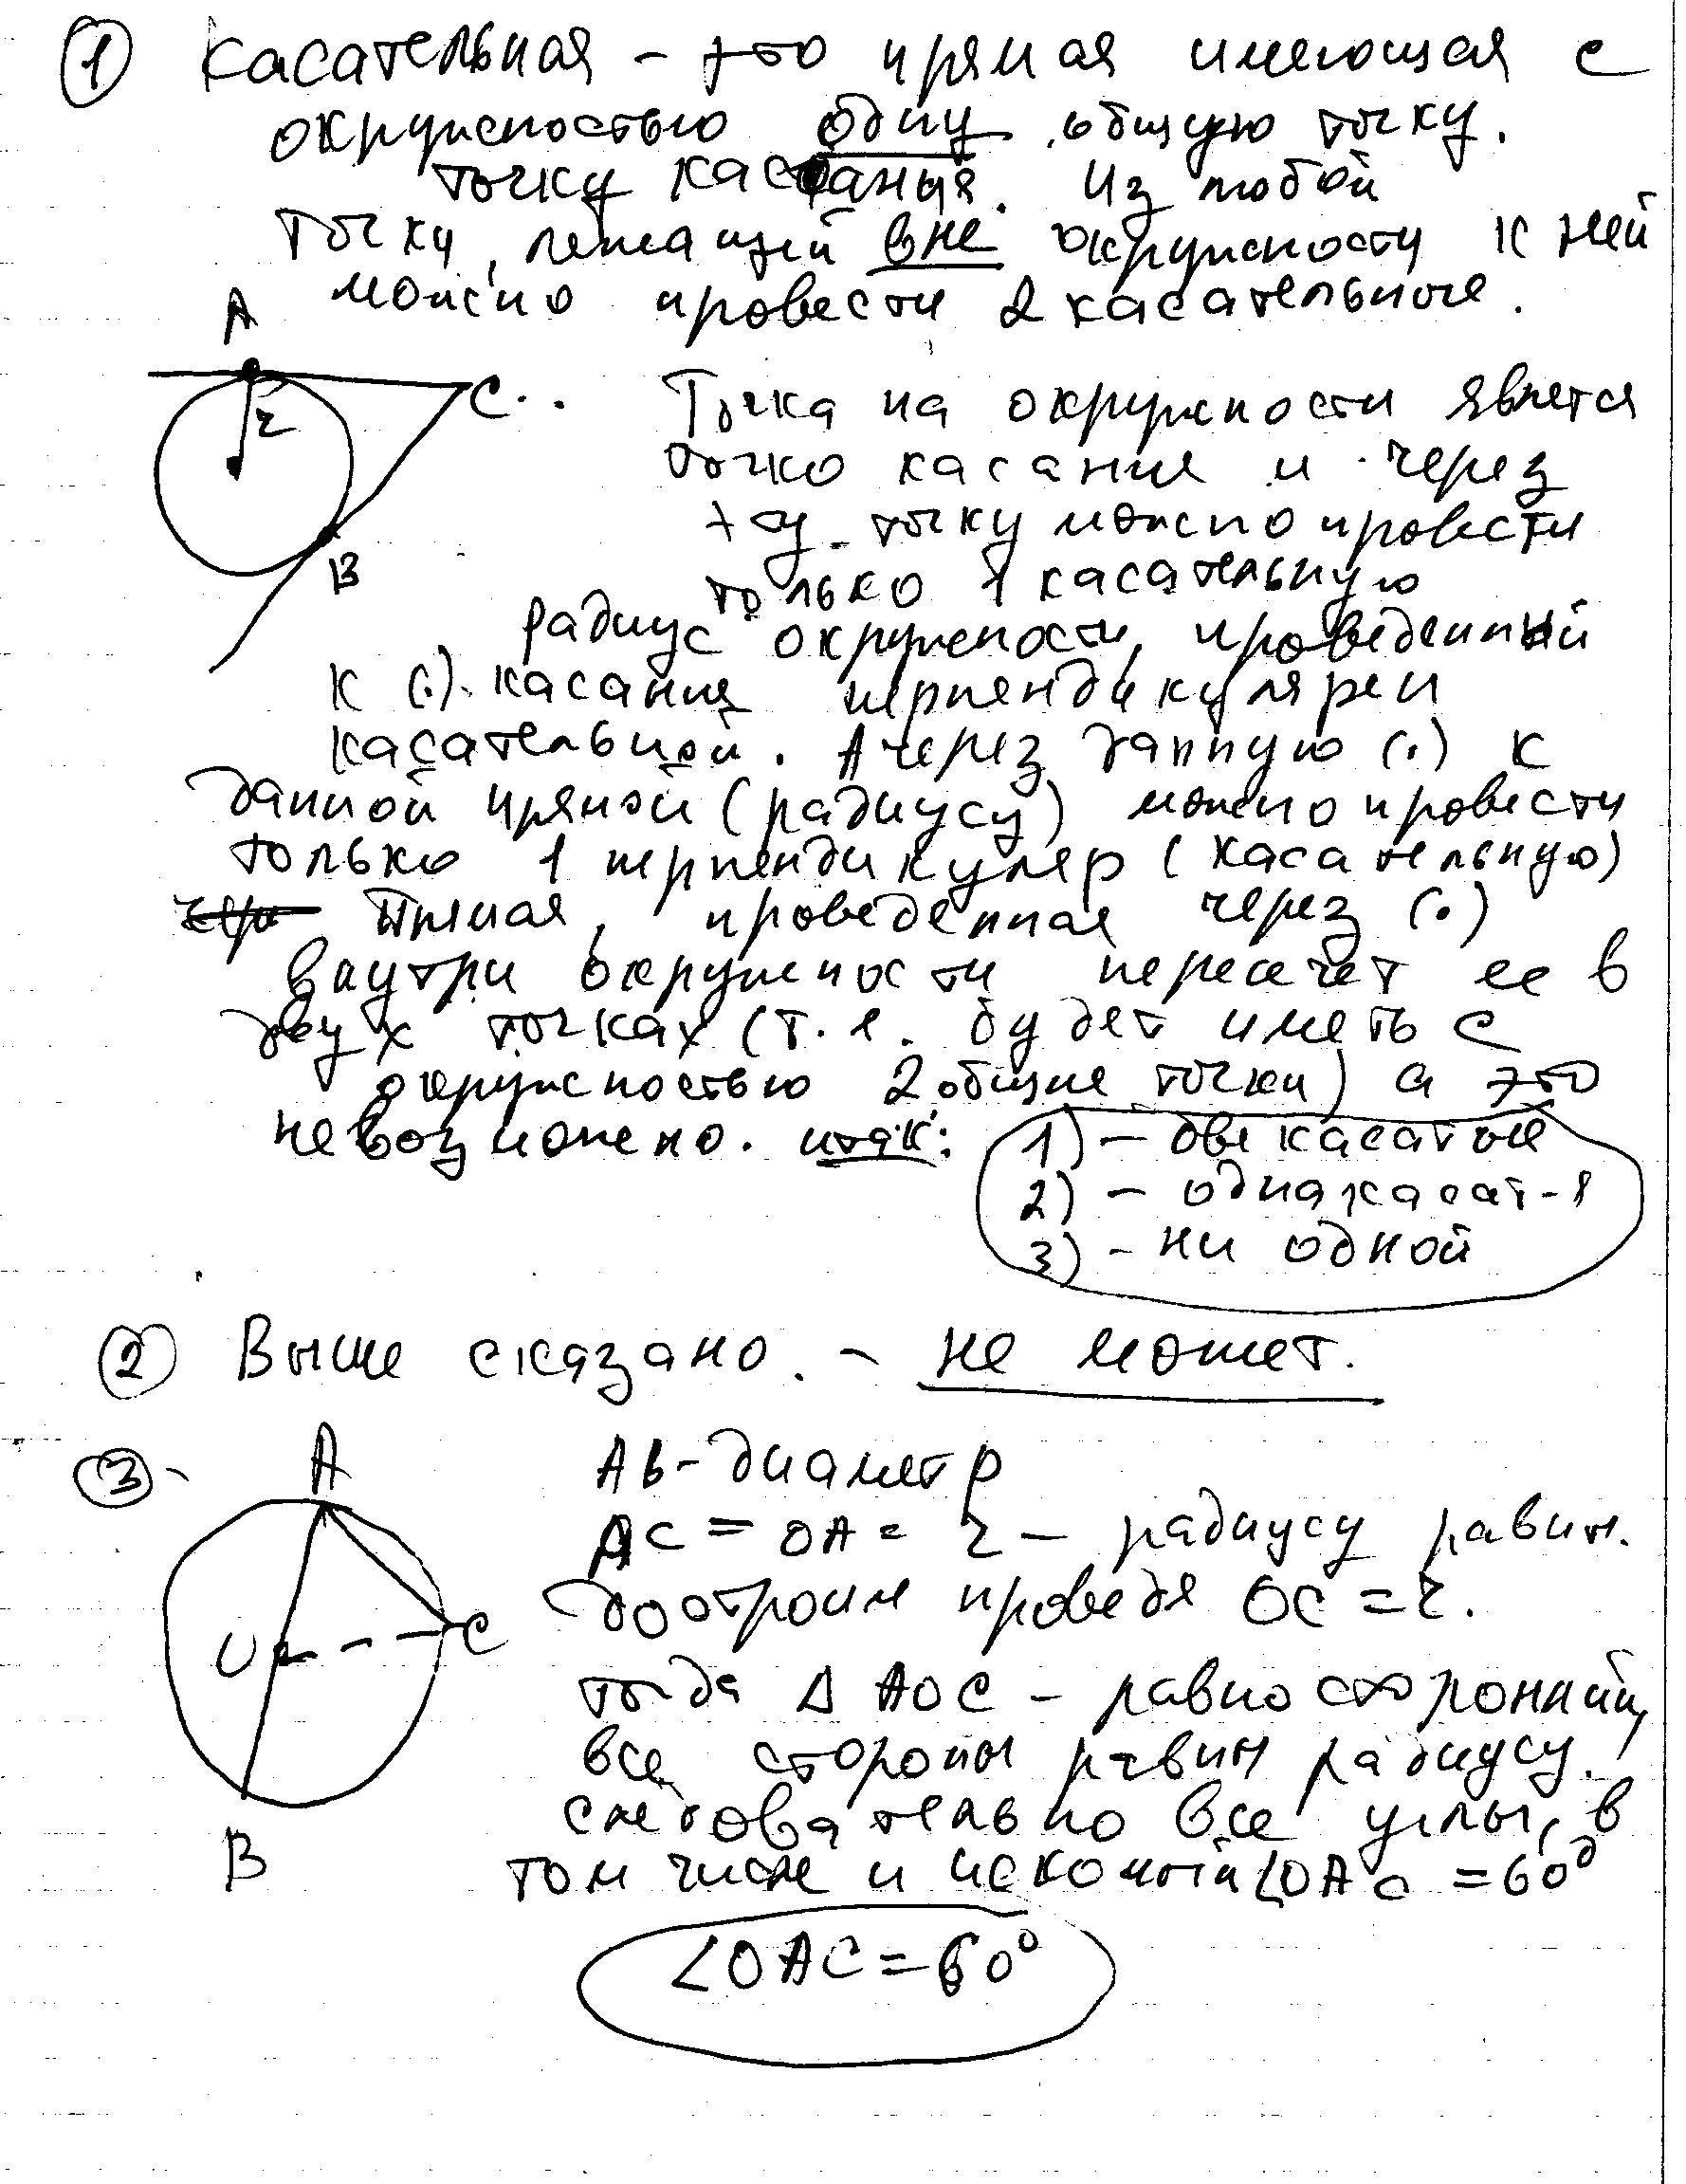 1 Касательная - это прямая имеющая с
окружностью одну общую точку.
точку касания. Из любой
точки, лежащий вне окружности к ней
можно провести 2 касательные.
A
r
C
B
Точка на окружности явлется
точко касания и через
эту точку можно провести
только 1 касательную
радиус окружности, проведенный
к (.) касания перпендикулярен
касательной. А через данную (.) к
данной прямой (радиусу) можно провести
только 1 перпендикуляр (касательную)
Прямая, проведенная через (.)
внутри окружности пересечет ее в
двух точках (т.е. будет иметь с
окружностью 2 общие точки) а это
невозможно. итак:
1) - две касатые
2) - одна касат-я
3) - ни одной
2 Выше сказано. - не может.
3
A
O
C
B
AB-диаметр
AC = OA = r - радиусу равны.
достроим проведя OC = r.
тогда Δ AOC - равносторонний,
все стороны равны радиусу.
следовательно все углы, в
том числе и искомый ∠OAC = 60°
∠OAC = 60°